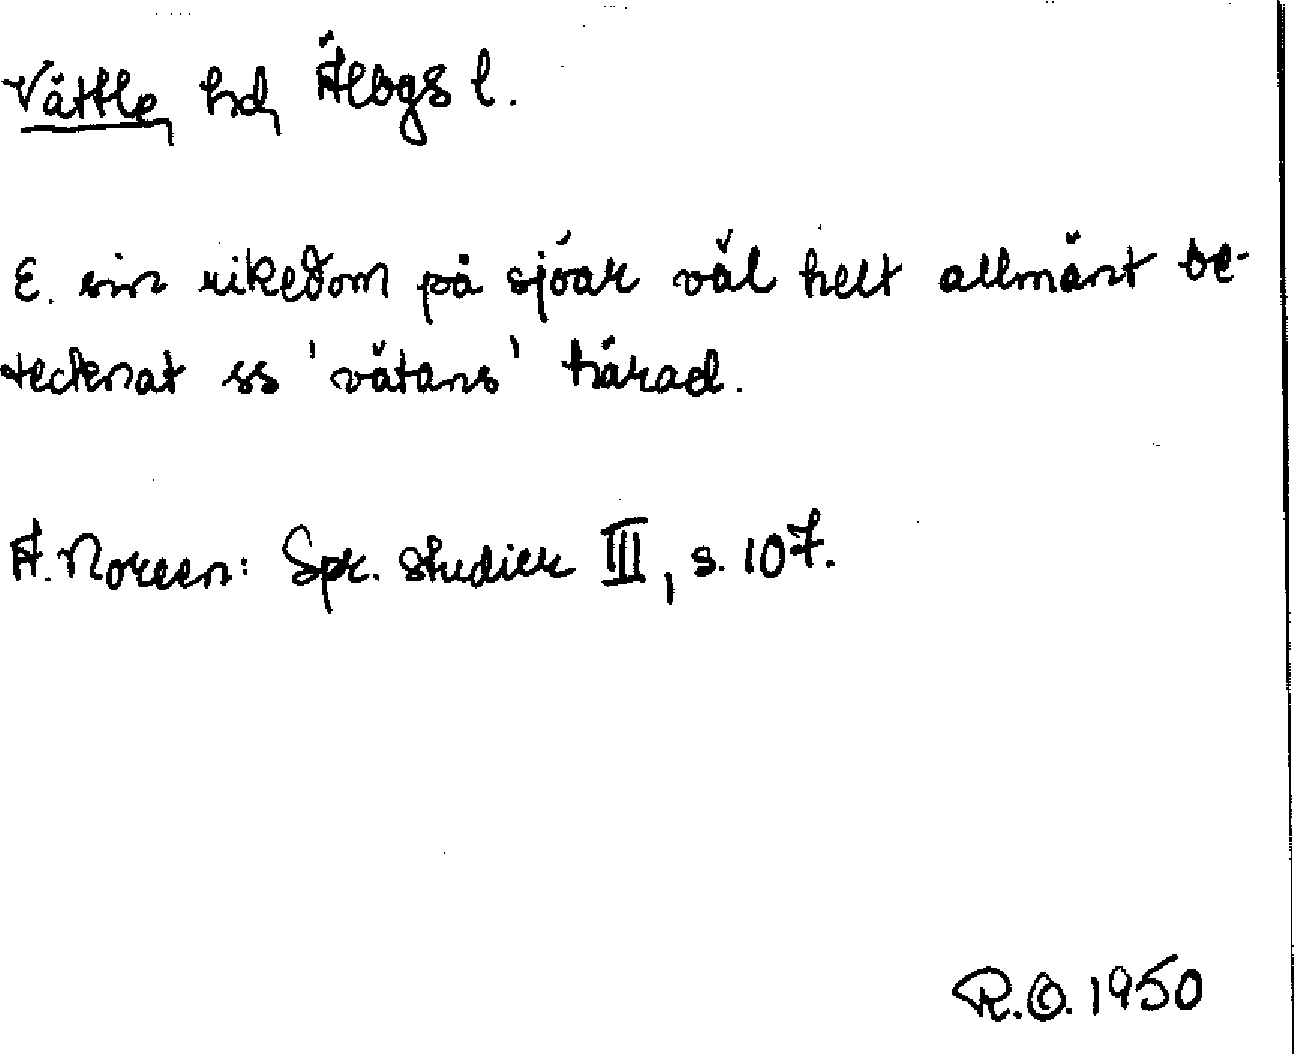 Vättle hd, Älvsgs l.
E. sin rikedom på sjöar väl helt allmänt be-
tecknat ss 'vätans' härad.
A. Noreen: Spr. studier III, s. 107.
R.O. 1950